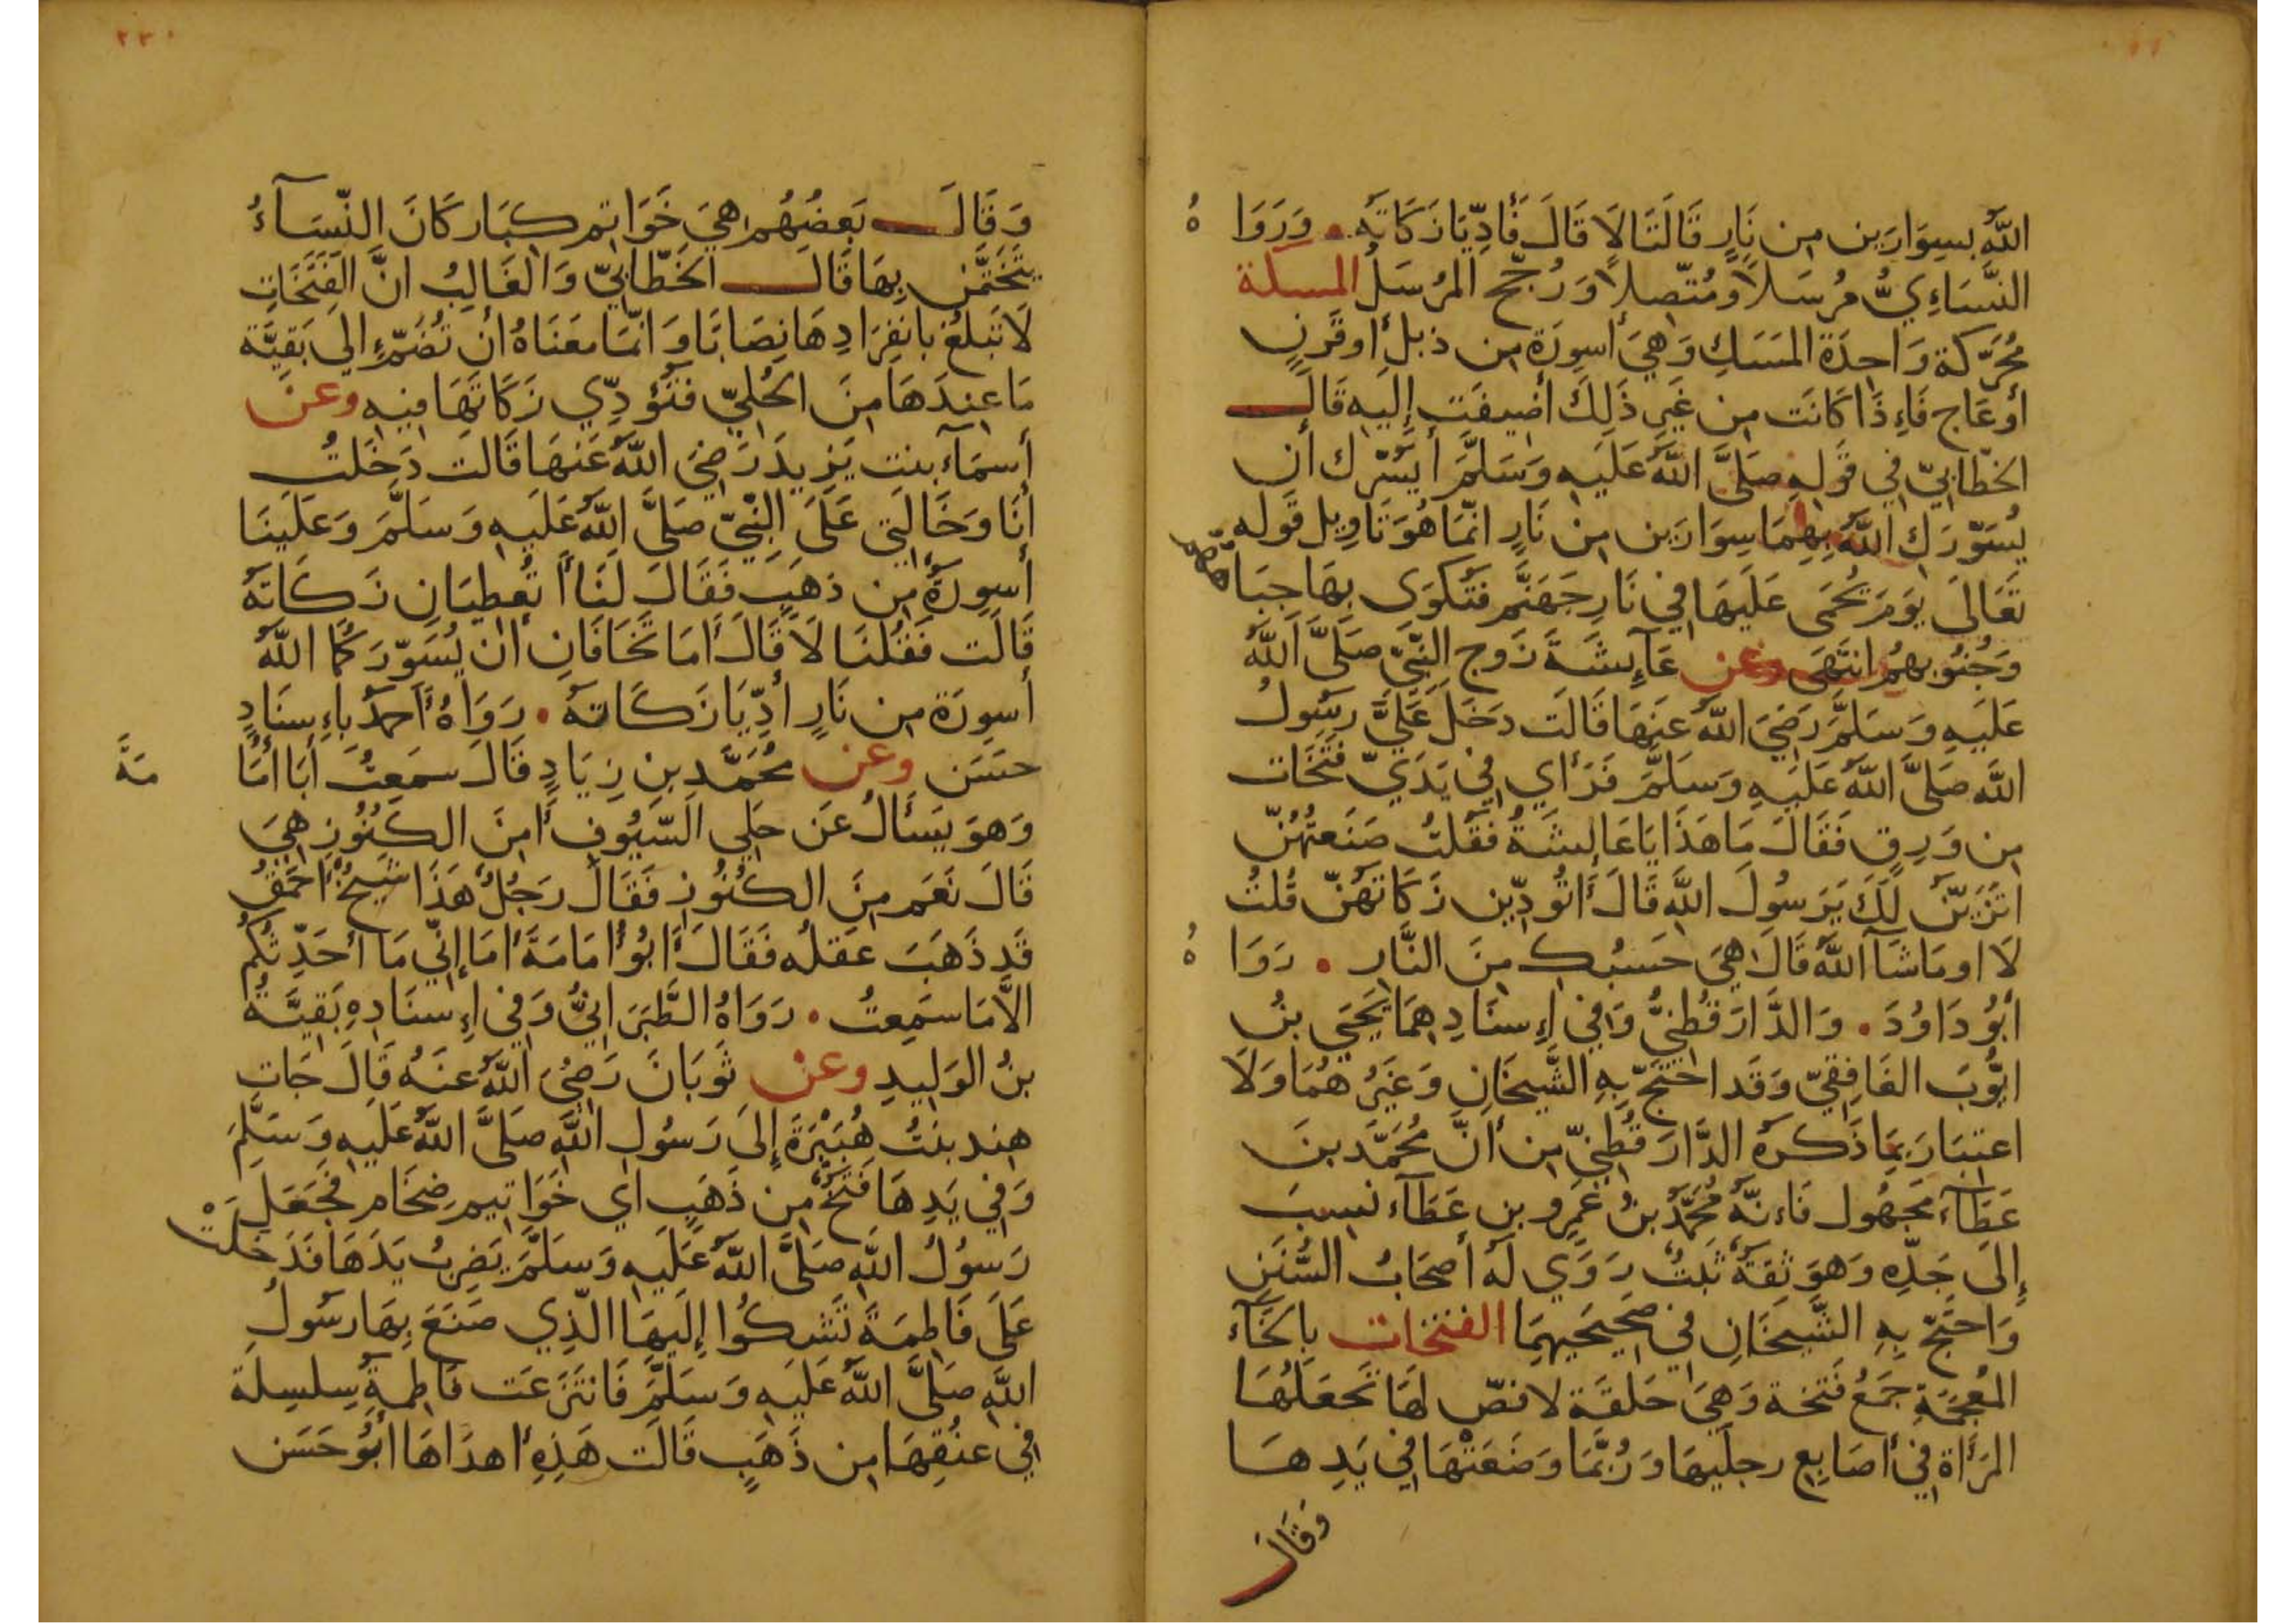 اللَّهُ بِسِوَارَين مِن نَارٍ قَالَتَا لَا قَالَ فَأَدِّيَا زَكَاتَهُ . وَرَوَاهُ
النَّسَاءِيُّ مُرسَلًا وَمُتَّصِلًا وَرُجِّحَ المُرسَلُ المسكة
مُحَرَّكَة وَاحِدَة المَسَكِ وَهِيَ أَسوِرَة مِن ذبل أَو قَرنٍ
أو عَاج فَاءِذَا كَانَت مِن غَيرِ ذَلِكَ أضِيفَت إِلَيهِ قَالَ
الخطّابِيّ فِي قَولِهِ صَلَّى اللَّهُ عَلَيهِ وَسَلَّمَ أَيَسُرّك أَن
يُسَوِّرَكِ اللَّهُ بِهِمَا سِوَارَين مِن نَارٍ انّمَا هُوَ تَاوِيل قَوله
تَعَالَى يَومَ يُحمَى عَلَيهَا فِي نَارِ جَهَنَّم فَتُكوَى بِهَا جِبَاهُهُم
وَجُنُوبهُم انتَهَى وعن عَآئِشَةَ زَوج النَّبِيّ صَلَّى اللَّهُ
عَلَيهِ وَسَلَّمَ رَضِيَ اللَّهُ عَنهَا قَالَت دَخَلَ عَلَيَّ رَسُولُ
اللَّه صَلَّى اللَّهُ عَلَيهِ وَسَلَّمَ فَرَأَاي فِي يَدَيّ فَتَخَات
مِن وَرِقٍ فَقَالَ مَا هَذَا يَا عَائِشَةُ فَقُلتُ صَنَعتُهُنّ
اتَزَيّنُ لَكَ يَرَسُولَ اللَّه قَالَ أَتُودِّين زَكَاتَهُنّ قُلتُ
لَا او مَا شَآ اللَّهُ قَالَ هِيَ حَسبُكِ مِنَ النَّارِ . رَوَاهُ
أَبُو دَاوُدَ . وَالدَّارَقُطنِيُّ وَفِي إِسنَادِهِمَا يَحيَى بنُ
ايُّوبَ الغَافِقِيّ وَقَد احتَجّ بِهِ الشَّيخَانِ وَغَيرُهُمَا وَلَا
اعتِبَارَ بِمَا ذَكَرَهُ الدَّارَقُطنِيّ مِن أَنَّ مُحَمَّد بنَ
عَطَآءَ مَجهُول فَاءنّهُ مُحَمَّدُ بنُ عَمرِو بنِ عَطَآء نسِبَ
إِلَى جَدِّهِ وَهوَ ثِقَةٌ ثَبتٌ رَوَي لَهُ أَصحَابُ السُّنَنِ
وَاحتَجّ بِهِ الشَّيخَانِ فِي صَحِيحَيهِمَا الفتخات بِالخَآءِ
المُعجَمَةِ جَمعُ فَتخة وَهِيَ حَلقَة لا فصّ لهَا تَجعَلُهَا
المَرأَاة فِي أَصَابِعِ رِجلَيهَا وَرُبَّمَا وَضَعَتْهَا فِي يَدِهَا
وَقَالَ
وَقَالَ بَعضُهُم هِيَ خَوَاتِم كِبَار كَانَ النّسَآءُ
يَتَخَتَّمنَ بِهَا قَالَ الخَطّابِيّ وَالغَالِبُ انَّ الفَتَخَاتِ
لَا تَبلُغ بِانفِرَادِهَا نِصَابًا وَانّمَا مَعنَاهُ ان تُضَمّ إِلَى بَقِيَّة
مَا عِندَهَا مِنَ الحُلِيّ فَتُؤدِّي زَكَاتَهَا فِيهِ وعن
أَسمَآءَ بِنتِ يَزِيدَ رَضِيَ اللَّهُ عَنهَا قَالَت دَخَلتُ
أَنَا وَخَالَتِي عَلَى النَّبِيّ صَلَّى اللَّهُ عَلَيهِ وَسَلَّمَ وَعَلَينَا
أَسوِرَةٌ مِن ذهَبٍ فَقَالَ لَنَا أَتُعطِيَانِ زَكَاتَهُ
قَالَت فَقُلنَا لَا قَالَ أَمَا تَخَافَانِ أَن يُسَوّرَكُمَا اللَّهُ
أَسوِرَة مِن نَارٍ أَدِّيَا زَكَاتَهُ . رَوَاهُ أَحمَدُ بِاءِسنَادٍ
حَسَن وعن مُحَمَّد بنِ زِيَادٍ قَالَ سَمِعتُ أَبَا أُمَامَةَ
وَهوَ يَسأَلُ عَن حِلَي السّيُوفِ أَمِنَ الكُنُوزِ هِيَ
قَالَ نَعَم مِنَ الكُنُوزِ فَقَالَ رَجُلٌ هَذَا شَيخٌ أَحمَقُ
قَد ذَهَبَ عَقلُه فَقَالَ أَبُو أُمَامَةَ أَمَا إِنِّي مَا أحَدِّثكُم
الَّا مَا سَمِعتُ . رَوَاهُ الطَّبَرَانِيُّ وَفِي إِسنَادِهِ بَقِيَّةُ
بنُ الوَلِيدِ وعن ثَوبَانَ رَضِيَ اللَّهُ عَنهُ قَالَ جَات
هِند بنتُ هُبَيْرَةَ إِلَى رَسُولِ اللَّهِ صَلَّى اللَّهُ عَلَيهِ وَسَلَّمَ
وَفِي يَدِهَا فَتَخٌ مِن ذَهَبٍ اي خَوَاتِيم ضِخَام فَجَعَلَ
رَسُولُ اللَّهِ صَلَّى اللَّهُ عَلَيهِ وَسَلَّمَ يَضرِبُ يَدَهَا فَدَخَلَتْ
عَلَى فَاطِمَةَ تَشكُوا إِلَيهَا الّذِي صَنَعَ بِهَا رَسُولُ
اللَّهِ صَلَّى اللَّهُ عَلَيهِ وَسَلَّمَ فَانتَزَعَت فَاطِمَةُ سِلسِلَةً
فِي عنُقِهَا مِن ذَهَبٍ قَالَت هَذِهِ أَهدَاهَا أَبُو حَسَن